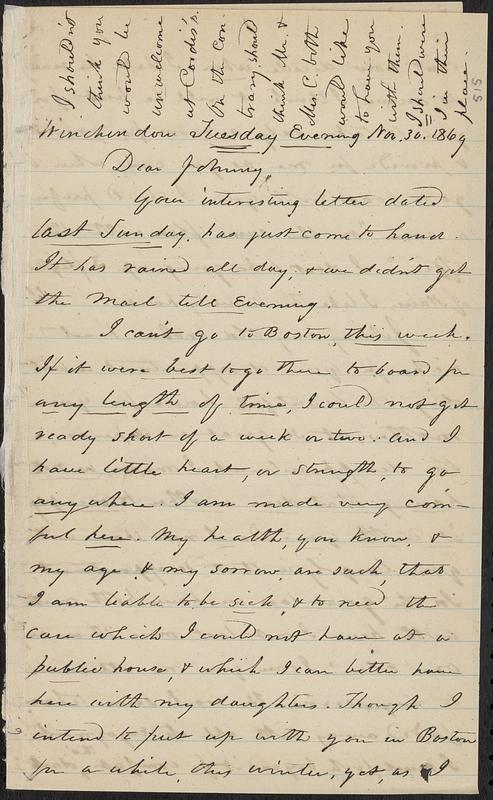 I should not
think you
would be
unwelcome
at Cordis's.
On the con-
trary should
think Mr. &
Mrs. C. both
would like
to have you
with them.
I should were
I in their
place.
515
Winchendon Tuesday Evening Nov. 30. 1869
Dear Johnny,
Your interesting letter dated
last Sunday, has just come to hand.
It has rained all day, & we didn't get
the Mail till Evening.
I can't go to Boston, this week.
If it were best to go there to board for
any length of time, I could not get
ready short of a week or two: and I
have little heart, or strength, to go
anywhere. I am made very com-
ful here. My health, you know, &
my age, & my sorrow, are such, that
I am liable to be sick, & to need the
care which I could not have at a
public house, & which I can better have
here with my daughters. Though I
intend to put up with you in Boston
for a while, this winter, yet, as I